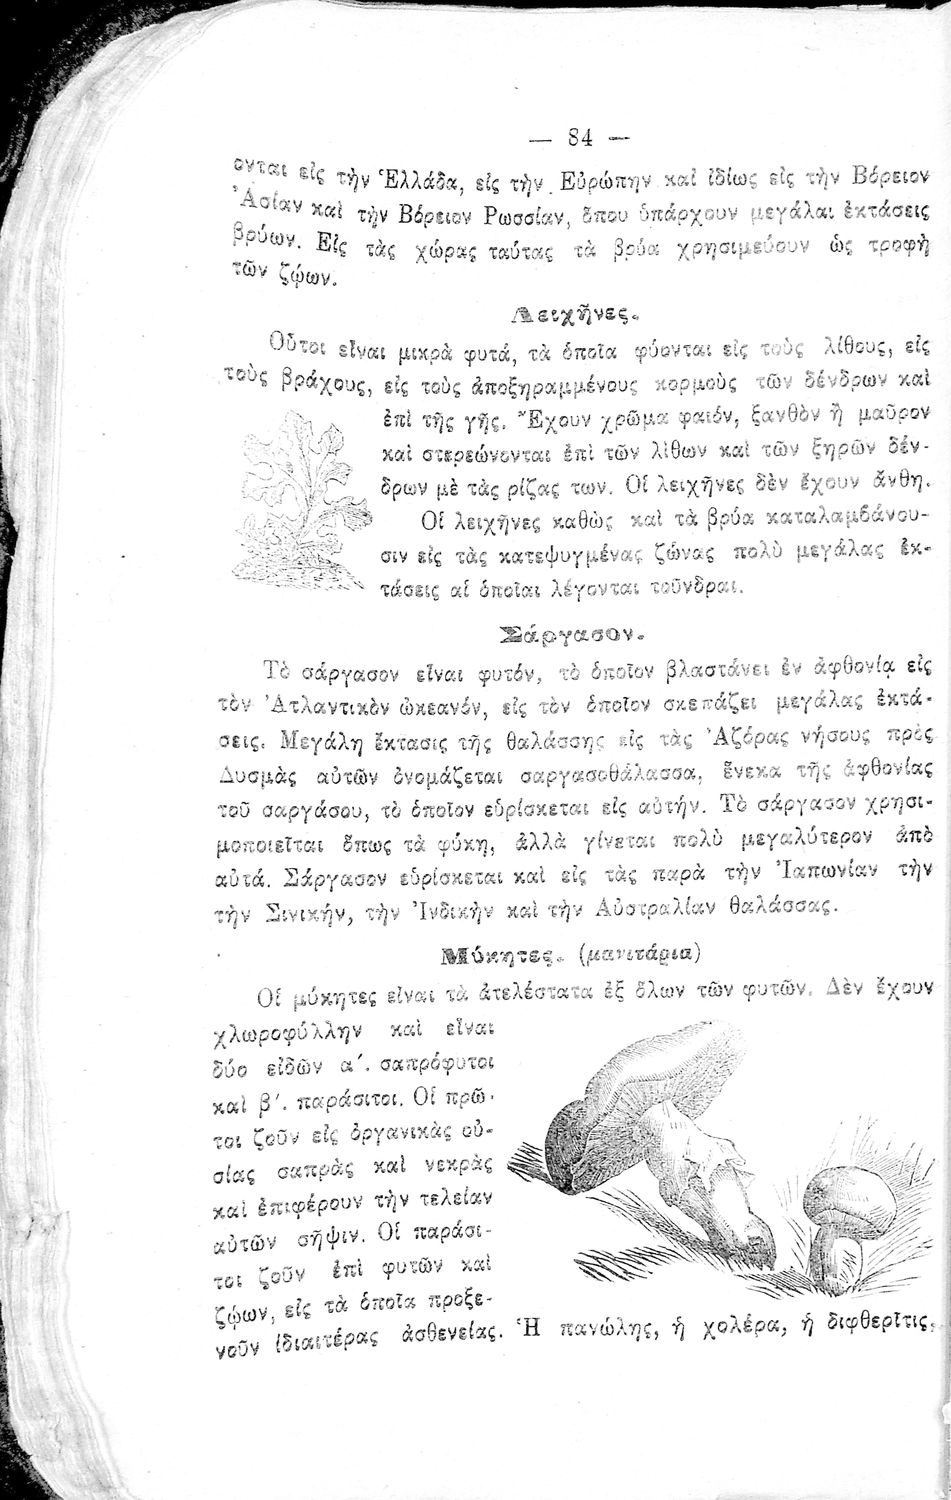 — 84 —
ονται εἰς τὴν Ἑλλάδα, εἰς τὴν Εὐρώπην καὶ ἰδίως εἰς τὴν Βόρειον
Ἀσίαν καὶ τὴν Βόρειον Ρωσσίαν, ὅπου ὑπάρχουν μεγάλαι ἐκτάσεις
βρύων. Εἰς τὰς χώρας ταύτας τὰ βρύα χρησιμεύουν ὡς τροφὴ
τῶν ζῴων.
Λειχῆνες.
Οὗτοι εἶναι μικρὰ φυτά, τὰ ὁποῖα φύονται εἰς τοὺς λίθους, εἰς
τοὺς βράχους, εἰς τοὺς ἀποξηραμμένους κορμοὺς τῶν δένδρων καὶ
ἐπὶ τῆς γῆς. Ἔχουν χρῶμα φαιόν, ξανθὸν ἢ μαῦρον
καὶ στερεώνονται ἐπὶ τῶν λίθων καὶ τῶν ξηρῶν δέν-
δρων μὲ τὰς ρίζας των. Οἱ λειχῆνες δὲν ἔχουν ἄνθη.
Οἱ λειχῆνες καθὼς καὶ τὰ βρύα καταλαμβάνου-
σιν εἰς τὰς κατεψυγμένας ζώνας πολὺ μεγάλας ἐκ-
τάσεις αἱ ὁποῖαι λέγονται τοῦνδραι.
Σάργασον.
Τὸ σάργασον εἶναι φυτόν, τὸ ὁποῖον βλαστάνει ἐν ἀφθονίᾳ εἰς
τὸν Ἀτλαντικὸν ὠκεανόν, εἰς τὸν ὁποῖον σκεπάζει μεγάλας ἐκτά-
σεις. Μεγάλη ἔκτασις τῆς θαλάσσης εἰς τὰς Ἀζόρας νήσους πρὸς
Δυσμὰς αὐτῶν ὀνομάζεται σαργασοθάλασσα, ἕνεκα τῆς ἀφθονίας
τοῦ σαργάσου, τὸ ὁποῖον εὑρίσκεται εἰς αὐτήν. Τὸ σάργασον χρησι-
μοποιεῖται ὅπως τὰ φύκη, ἀλλὰ γίνεται πολὺ μεγαλύτερον ἀπὸ
αὐτά. Σάργασον εὑρίσκεται καὶ εἰς τὰς παρὰ τὴν Ἰαπωνίαν τὴν
τὴν Σινικήν, τὴν Ἰνδικὴν καὶ τὴν Αὐστραλίαν θαλάσσας.
Μύκητες. (μανιτάρια)
Οἱ μύκητες εἶναι τὰ ἀτελέστατα ἐξ ὅλων τῶν φυτῶν. Δὲν ἔχουν
χλωροφύλλην καὶ εἶναι
δύο εἰδῶν α΄. σαπρόφυτοι
καὶ β΄. παράσιτοι. Οἱ πρῶ-
τοι ζοῦν εἰς ὀργανικὰς οὐ-
σίας σαπρὰς καὶ νεκρὰς
καὶ ἐπιφέρουν τὴν τελείαν
αὐτῶν σῆψιν. Οἱ παράσι-
τοι ζοῦν ἐπὶ φυτῶν καὶ
ζῴων, εἰς τὰ ὁποῖα προξε-
νοῦν ἰδιαιτέρας ἀσθενείας. Ἡ πανώλης, ἡ χολέρα, ἡ διφθερῖτις,